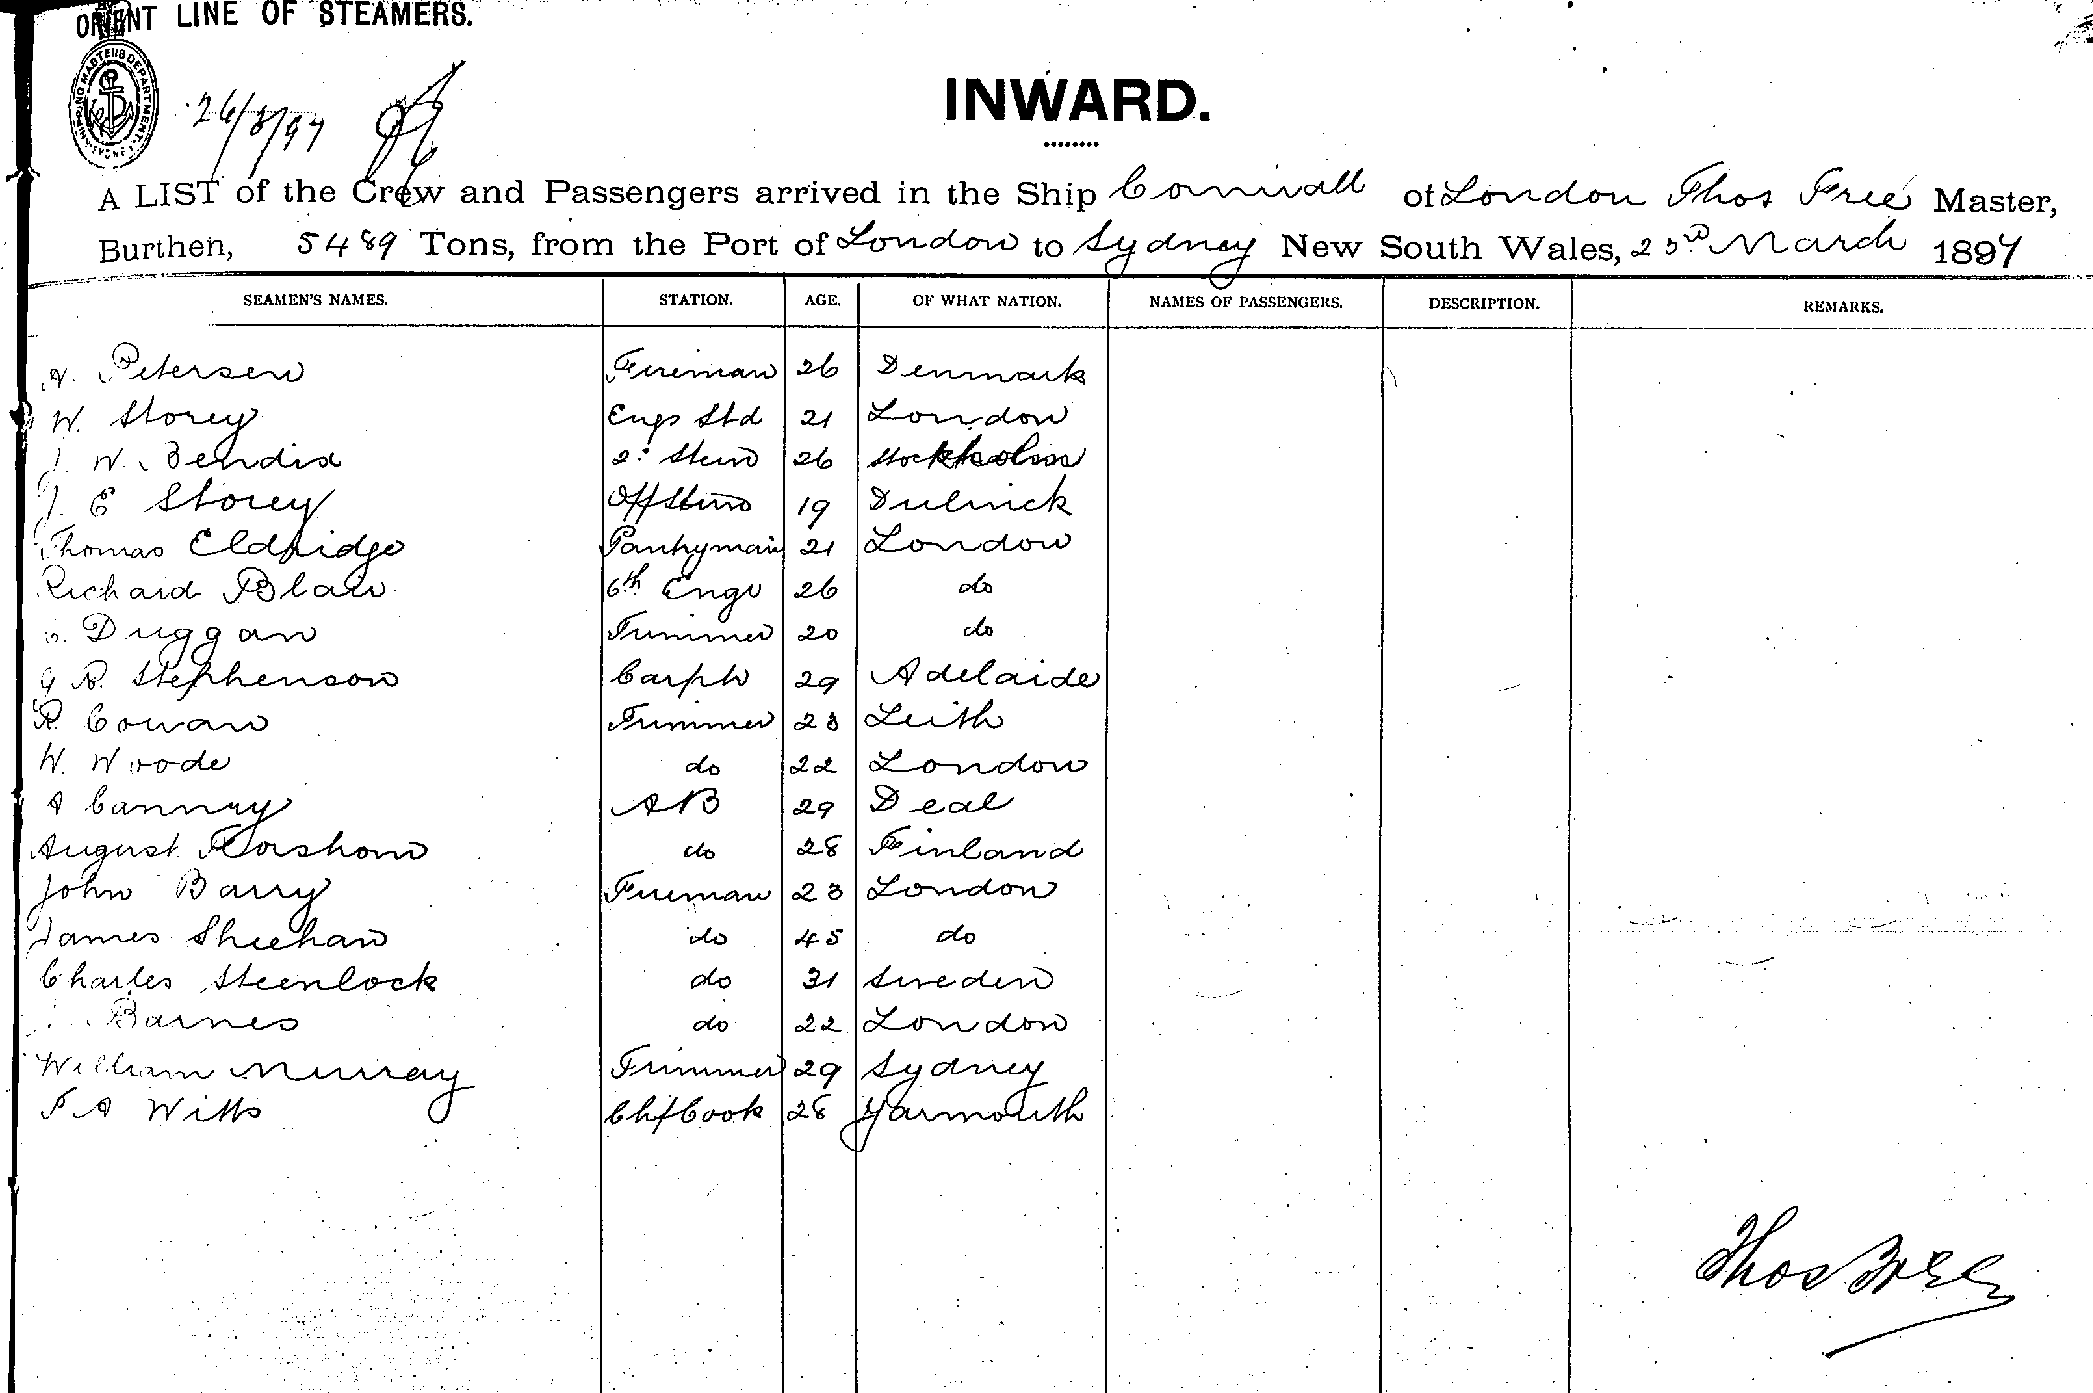 ORIENT LINE OF STEAMERS.
SHIPPING MASTERS DEPARTMENT SYDNEY
26/3/97
INWARD.
A LIST of the Crew and Passengers arrived in the Ship Cornwall of London Thos Free Master,
Burthen, 5489 Tons, from the Port of London to Sydney New South Wales, 23rd March 1897
SEAMEN'S NAMES. STATION. AGE. OF WHAT NATION. NAMES OF PASSENGERS. DESCRIPTION. REMARKS.
A. Petersen Fireman 26 Denmark
W. Storey Engs Std 21 London
J. W. Bendix 2d Stew 26 Stockholm
J. E Storey Off Stew 19 Dulwick
Thomas Eldridge Pantryman 21 London
Richard Blair 6th Engr 26 do
Duggan Trimmer 20 do
G R. Stephenson Carptr 29 Adelaide
R. Cowan Trimmer 23 Leith
W. Woode do 22 London
A Cannery AB 29 Deal
August do 28 Finland
John Barry Fireman 23 London
James Sheehan do 45 do
Charles Steenlock do 31 Sweden
Barnes do 22 London
William Murray Trimmer 29 Sydney
F A Witts Chf Cook 28 Yarmouth
Thos Free